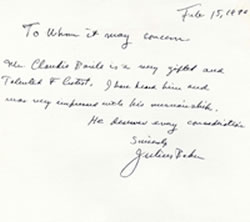 Feb 15, 19
To Whom it may concern
Mr. Claudio is a very gifted and
Talented Artist. I have heard him and
was very impressed with his musicianship.
He deserves every consideration
Sincerely
Julius Baker